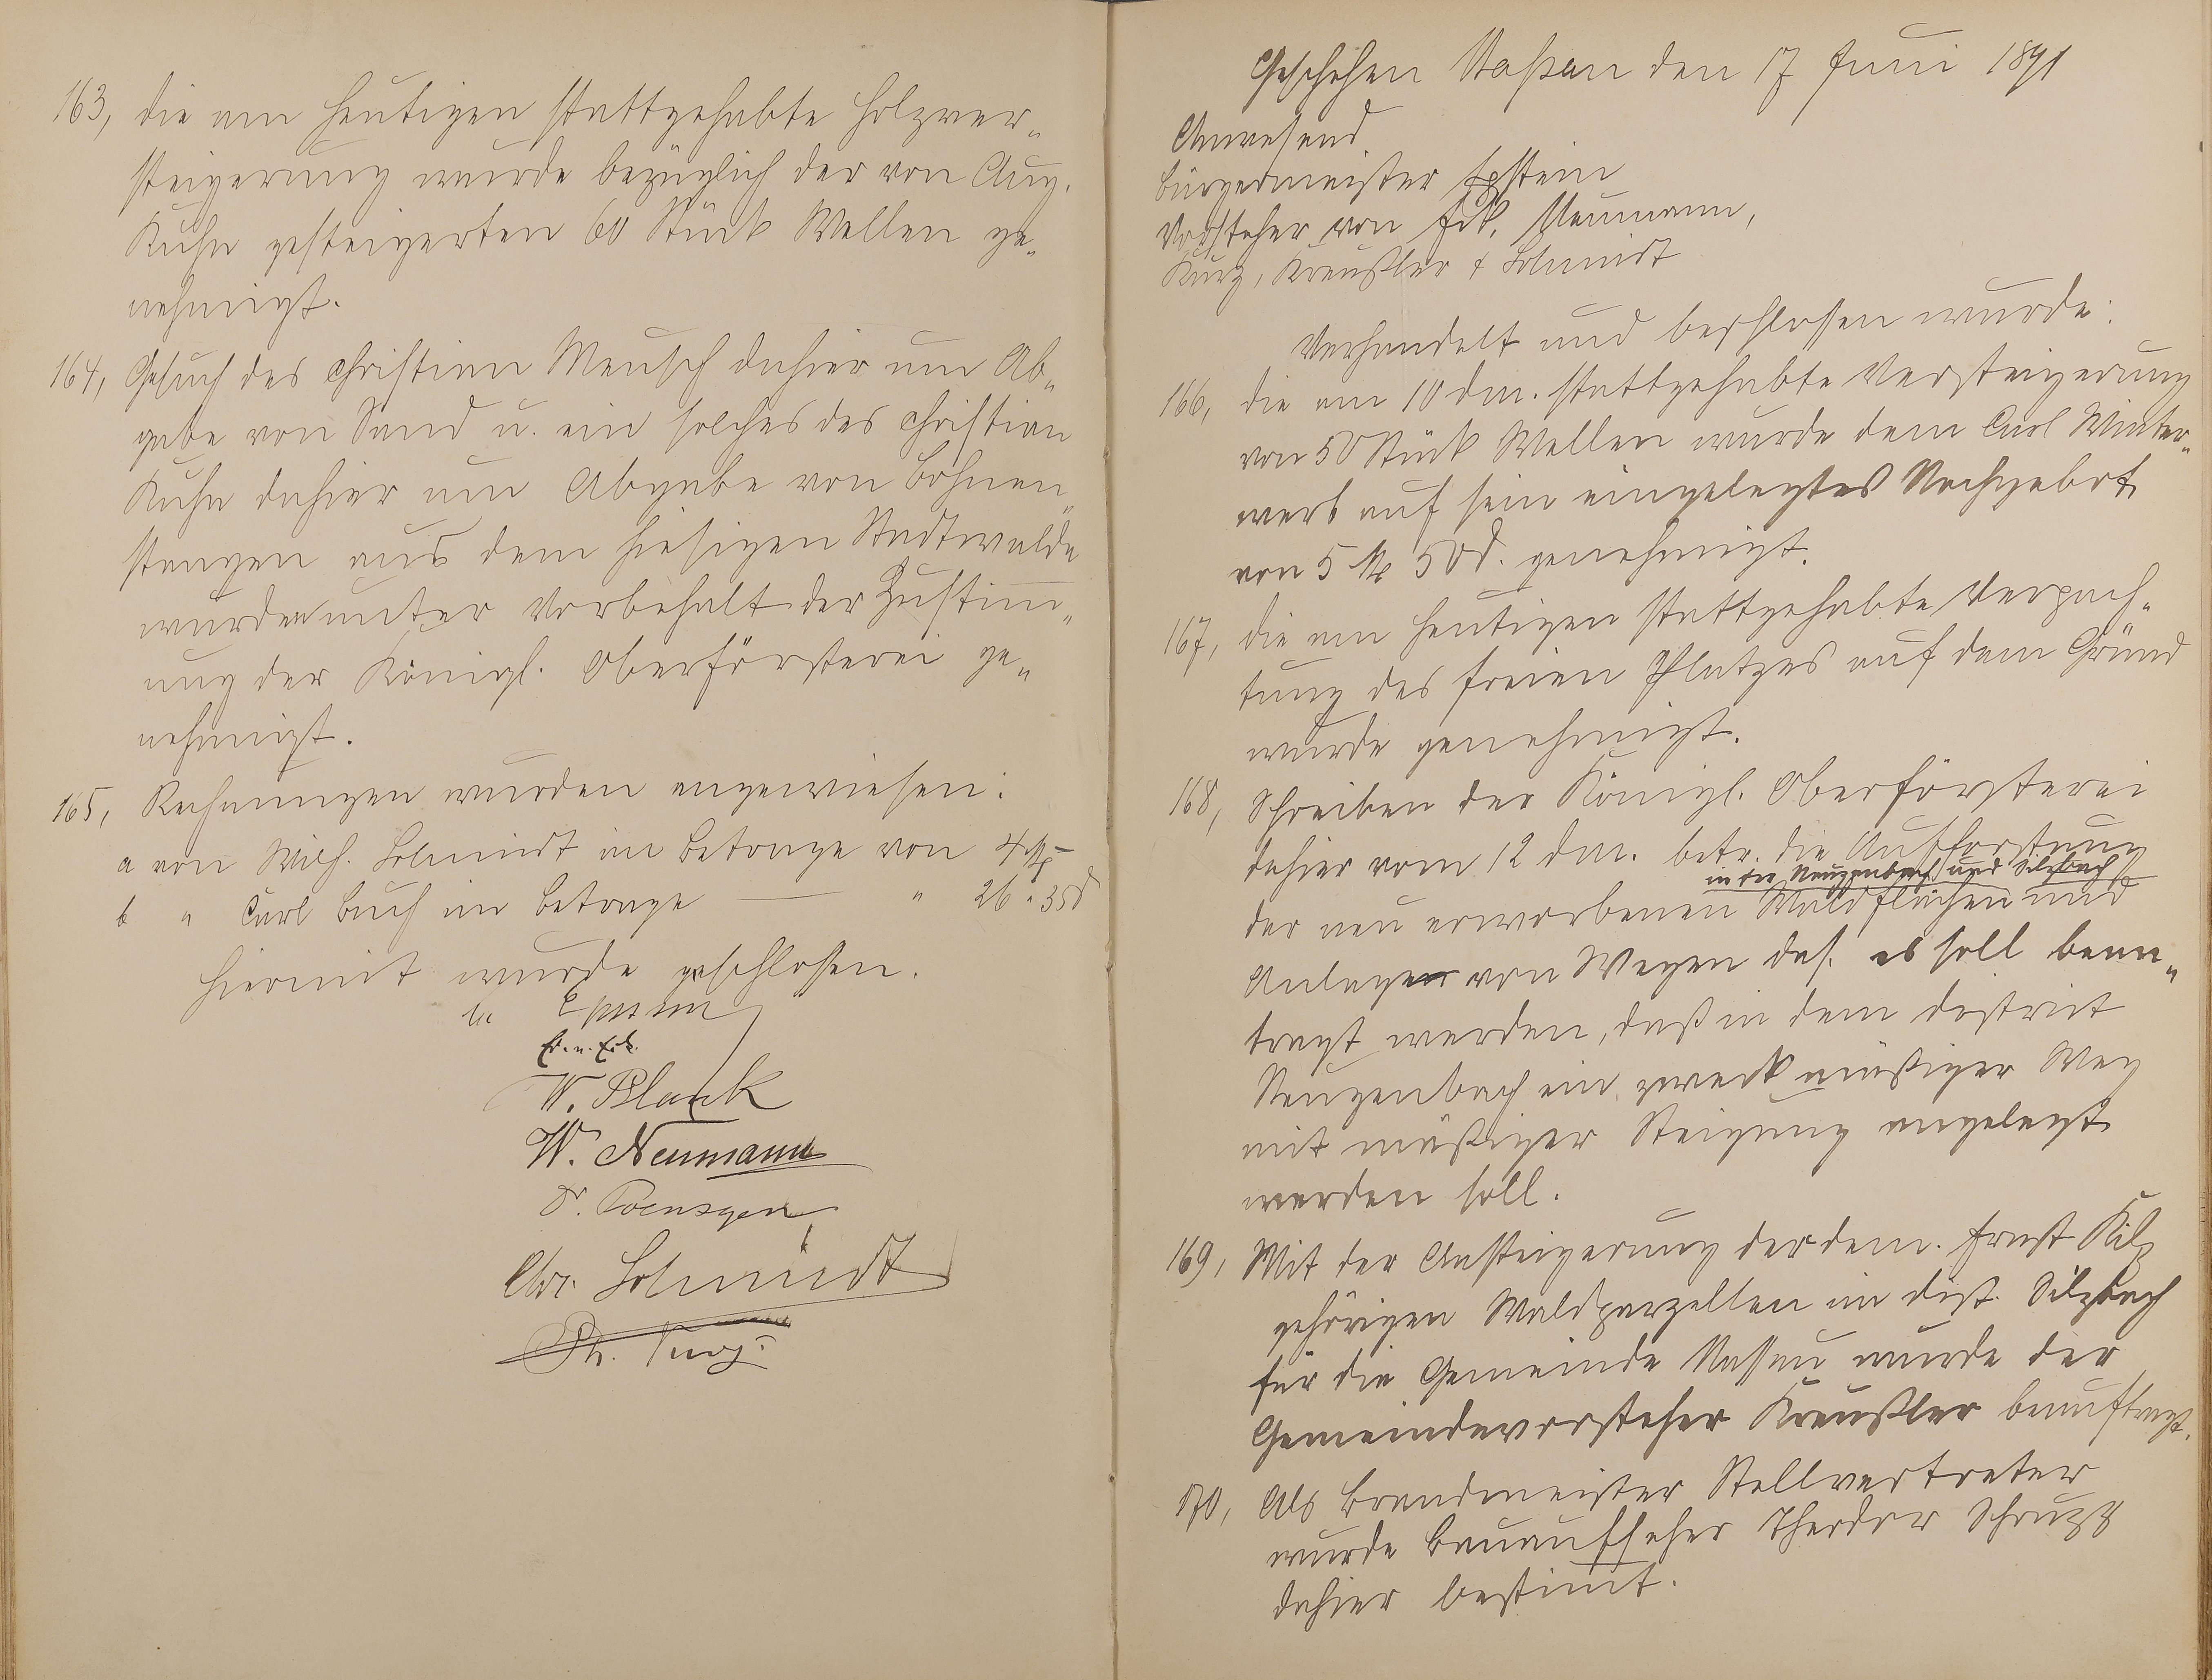 163, die am heutigen stattgehabte Holzver-
steigerung wurde bezüglich der von Aug.
Kuhn gesteigerten 60 Stück Wellen ge-
nehmigt.
164, Gesuch des Christian Meusch dahier um Ab-
gabe von Sand u. ein solches des Christian
Kuhn dahier um Abgabe von Bohnen-
stangen aus dem hiesigen Stadtwalde
wurden unter Vorbehalt der Zustim̅-
ung der Königl. Oberförsterei ge-
nehmigt.
165, Rechnungen wurden angewiesen:
a von Wilh. Schmidt im Betrage von 4 M –
b " Carl Buch im Betrage — " 26 " 35 d
Hiermit wurde geschlossen.
Epstein
W. Blank
W. Neumann
Dr. Poensgen
Chr. Schmidt
Ph. Kurz
Geschehen Nassau den 17 Juni 1891
Anwesend
Bürgermeister Epstein
Vorsteher von Eck, Neumann,
Kurz, Kreußler & Schmidt
Verhandelt und beschlossen wurde:
166, die am 10 dm. stattgehabte Versteigerung
von 50 Stück Wellen wurde dem Carl Winter-
werb auf sein eingelegtes Nachgebot
von 5 M 50 d. genehmigt.
167, die am heutigen stattgehabte Verpach-
tung des freien Platzes auf dem Gründ
wurde genehmigt.
168, Schreiben der Königl. Oberförsterei
dahier vom 12 dm. betr. die Aufforstung
in der Neuzenbach und Silzbach
der neu erworbenen Waldflächen und
Anlagen von Wegen das. es soll bean-
tragt werden, daß in dem District
Neuzenbach ein zweckmäßiger Weg
mit mäßiger Steigung angelegt
werden soll.
169, Mit der Ansteigerung der dem Ernst Kilz
gehörigen Waldparzellen im Dist. Silzbach
für die Gemeinde Nassau wurde der
Gemeindevorsteher Kreußler beauftragt.
170, Als Brandmeister Stellvertreter
wurde Bauaufseher Theodor
dahier bestim̅t.